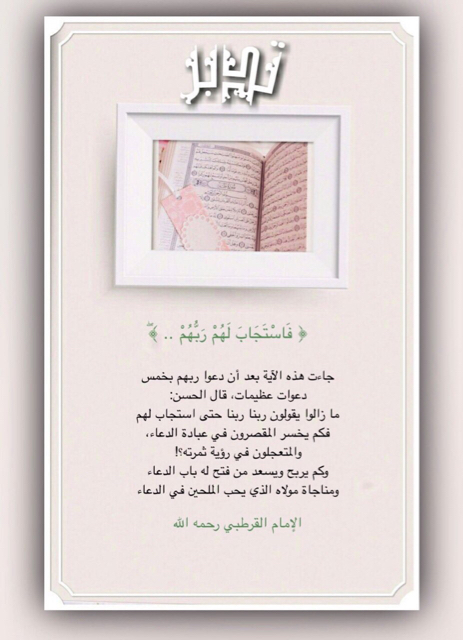 تدبر
﴿ فَاسْتَجَابَ لَهُمْ رَبُّهُمْ .. ﴾
جاءت هذه الآية بعد أن دعوا ربهم بخمس
دعوات عظيمات، قال الحسن:
ما زالوا يقولون ربنا ربنا حتى استجاب لهم
فكم يخسر المقصرون في عبادة الدعاء،
والمتعجلون في رؤية ثمرته؟!
وكم يربح ويسعد من فتح له باب الدعاء
ومناجاة مولاه الذي يحب الملحين في الدعاء
الإمام القرطبي رحمه الله